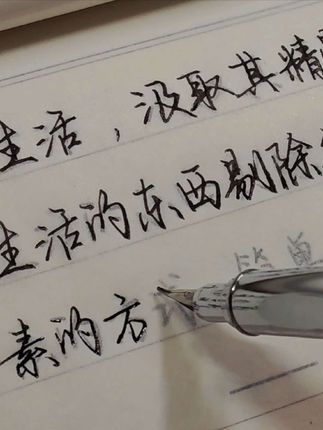 生活，汲取其精
生活的东西剔除
素的方式 简单